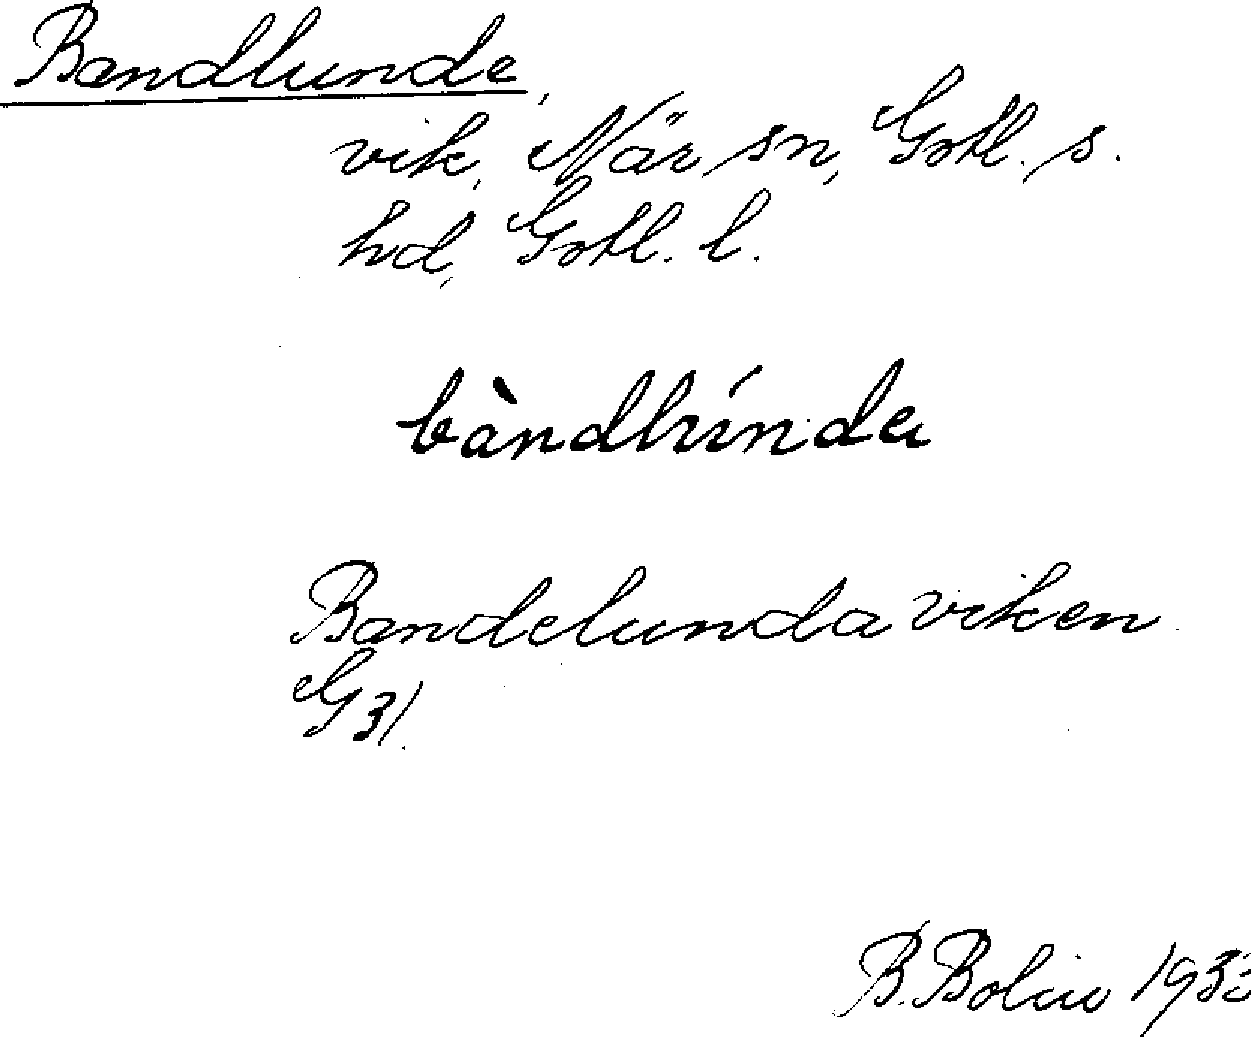 Bandlunde,
vik, När sn, Gotl. s.
hd, Gotl. l.
bàndlúnda
Bandelundaviken
G 31.
B. Bolin 1933